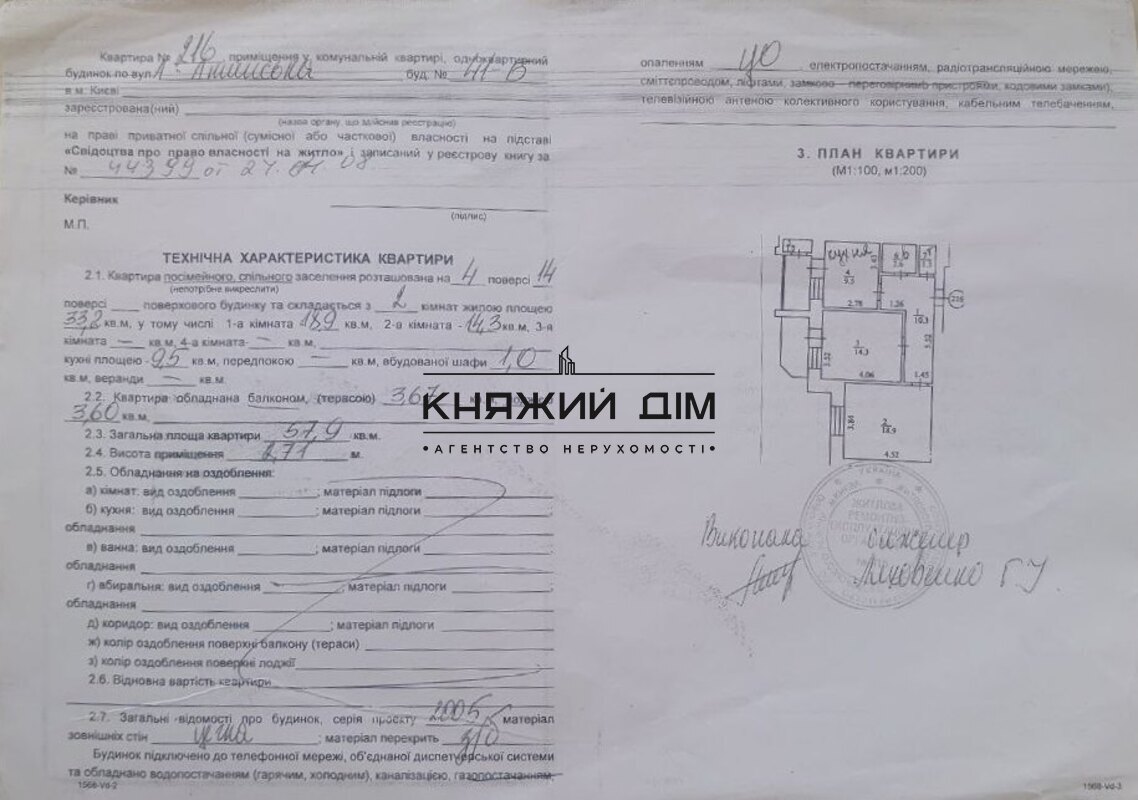 Квартира № 216 приміщення у комунальній квартирі, одноквартирний
будинок по вул. буд. № 41-В
в м. Києві
зареєстрована(ний)
(назва органу, що здійснив реєстрацію)
на праві приватної спільної (сумісної або часткової) власності на підставі
«Свідоцтва про право власності на житло» і записаний у реєстрову книгу за
№ 44399 от
Керівник
(підпис)
М.П.
ТЕХНІЧНА ХАРАКТЕРИСТИКА КВАРТИРИ
2.1. Квартира посімейного, спільного заселення розташована на 4 поверсі 14
(непотрібне викреслити)
поверсі поверхового будинку та складається з 2 кімнат жилою площею
33,2 кв.м, у тому числі 1-а кімната 18,9 кв.м, 2-а кімната - 14,3 кв.м, 3-я
кімната — кв.м, 4-а кімната- — кв.м,
кухні площею - 9,5 кв.м, передпокою — кв.м, вбудованої шафи 1,0
кв.м, веранди — кв.м.
2.2. Квартира обладнана балконом, (терасою) 3,67
3,60 кв.м,
КНЯЖИЙ ДІМ
•АГЕНТСТВО НЕРУХОМОСТІ•
2.3. Загальна площа квартири 57,9 кв.м.
2.4. Висота приміщення 2,71 м.
2.5. Обладнання на оздоблення:
а) кімнат: вид оздоблення ; матеріал підлоги
б) кухня: вид оздоблення ; матеріал підлоги
обладнання
в) ванна: вид оздоблення ; матеріал підлоги
обладнання
г) вбиральня: вид оздоблення ; матеріал підлоги
обладнання
д) коридор: вид оздоблення ; матеріал підлоги
ж) колір оздоблення поверхні балкону (тераси)
з) колір оздоблення поверхні лоджії
2.6. Відновна вартість квартири
2.7. Загальні відомості про будинок, серія проекту матеріал
зовнішніх стін цегла ; матеріал перекрить з/б
Будинок підключено до телефонної мережі, об'єднаної диспетчерської системи
та обладнано водопостачанням (гарячим, холодним), каналізацією, газопостачанням,
1568-Vd-2
опаленням ЦО електропостачанням, радіотрансляційною мережею,
сміттєпроводом, ліфтами, замково – переговорними пристроями, кодовими замками),
телевізійною антеною колективного користування, кабельним телебаченням,
3. ПЛАН КВАРТИРИ
(М1:100, м1:200)
кухня
4
9.5
2.78
1.26
1
10.3
216
3
14.3
3.52
5.52
4.06
1.45
2
18.9
3.84
4.52
УКРАЇНА
ЖИТЛОВА
Виконала інженер
1568-Vd-3